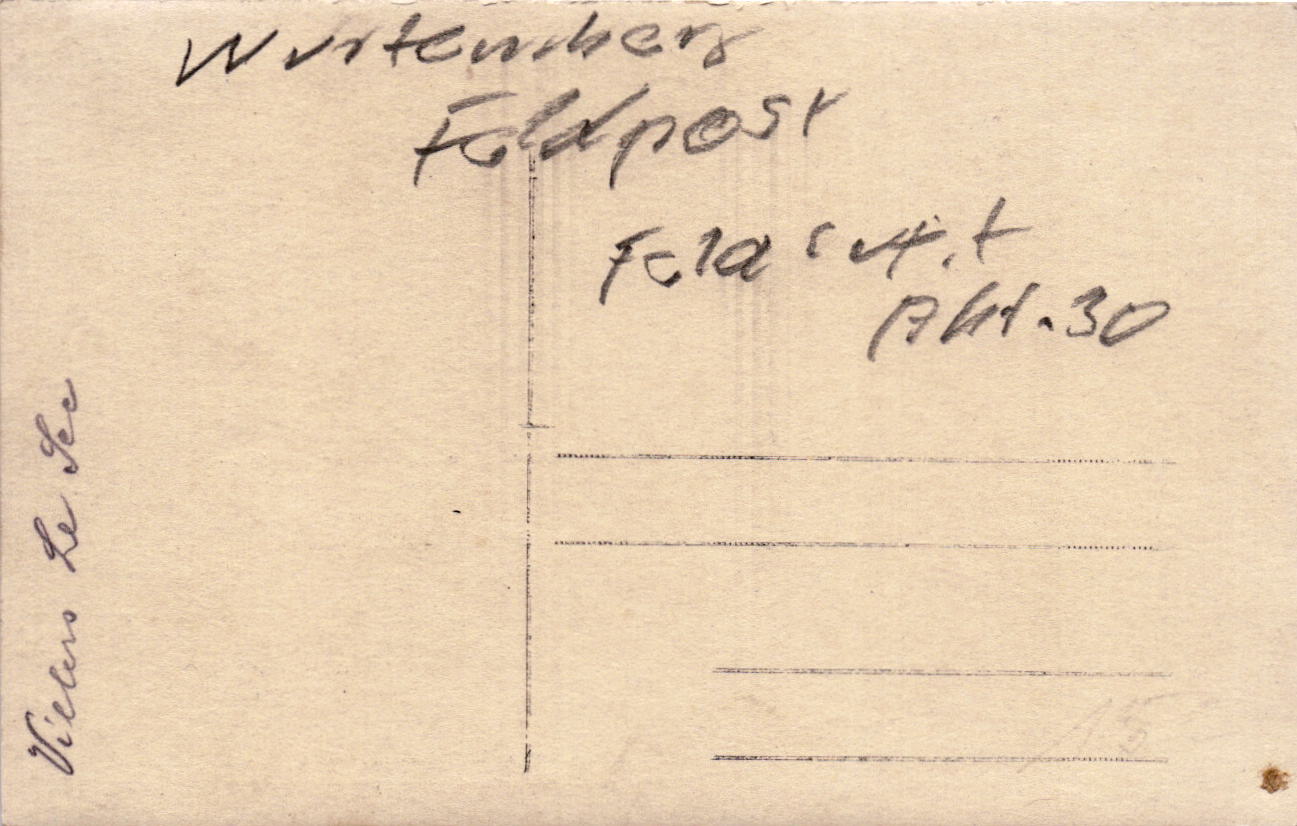 Wurtemberg
Feldpost
Feld
Abt. 30
Villers Le Sec
15